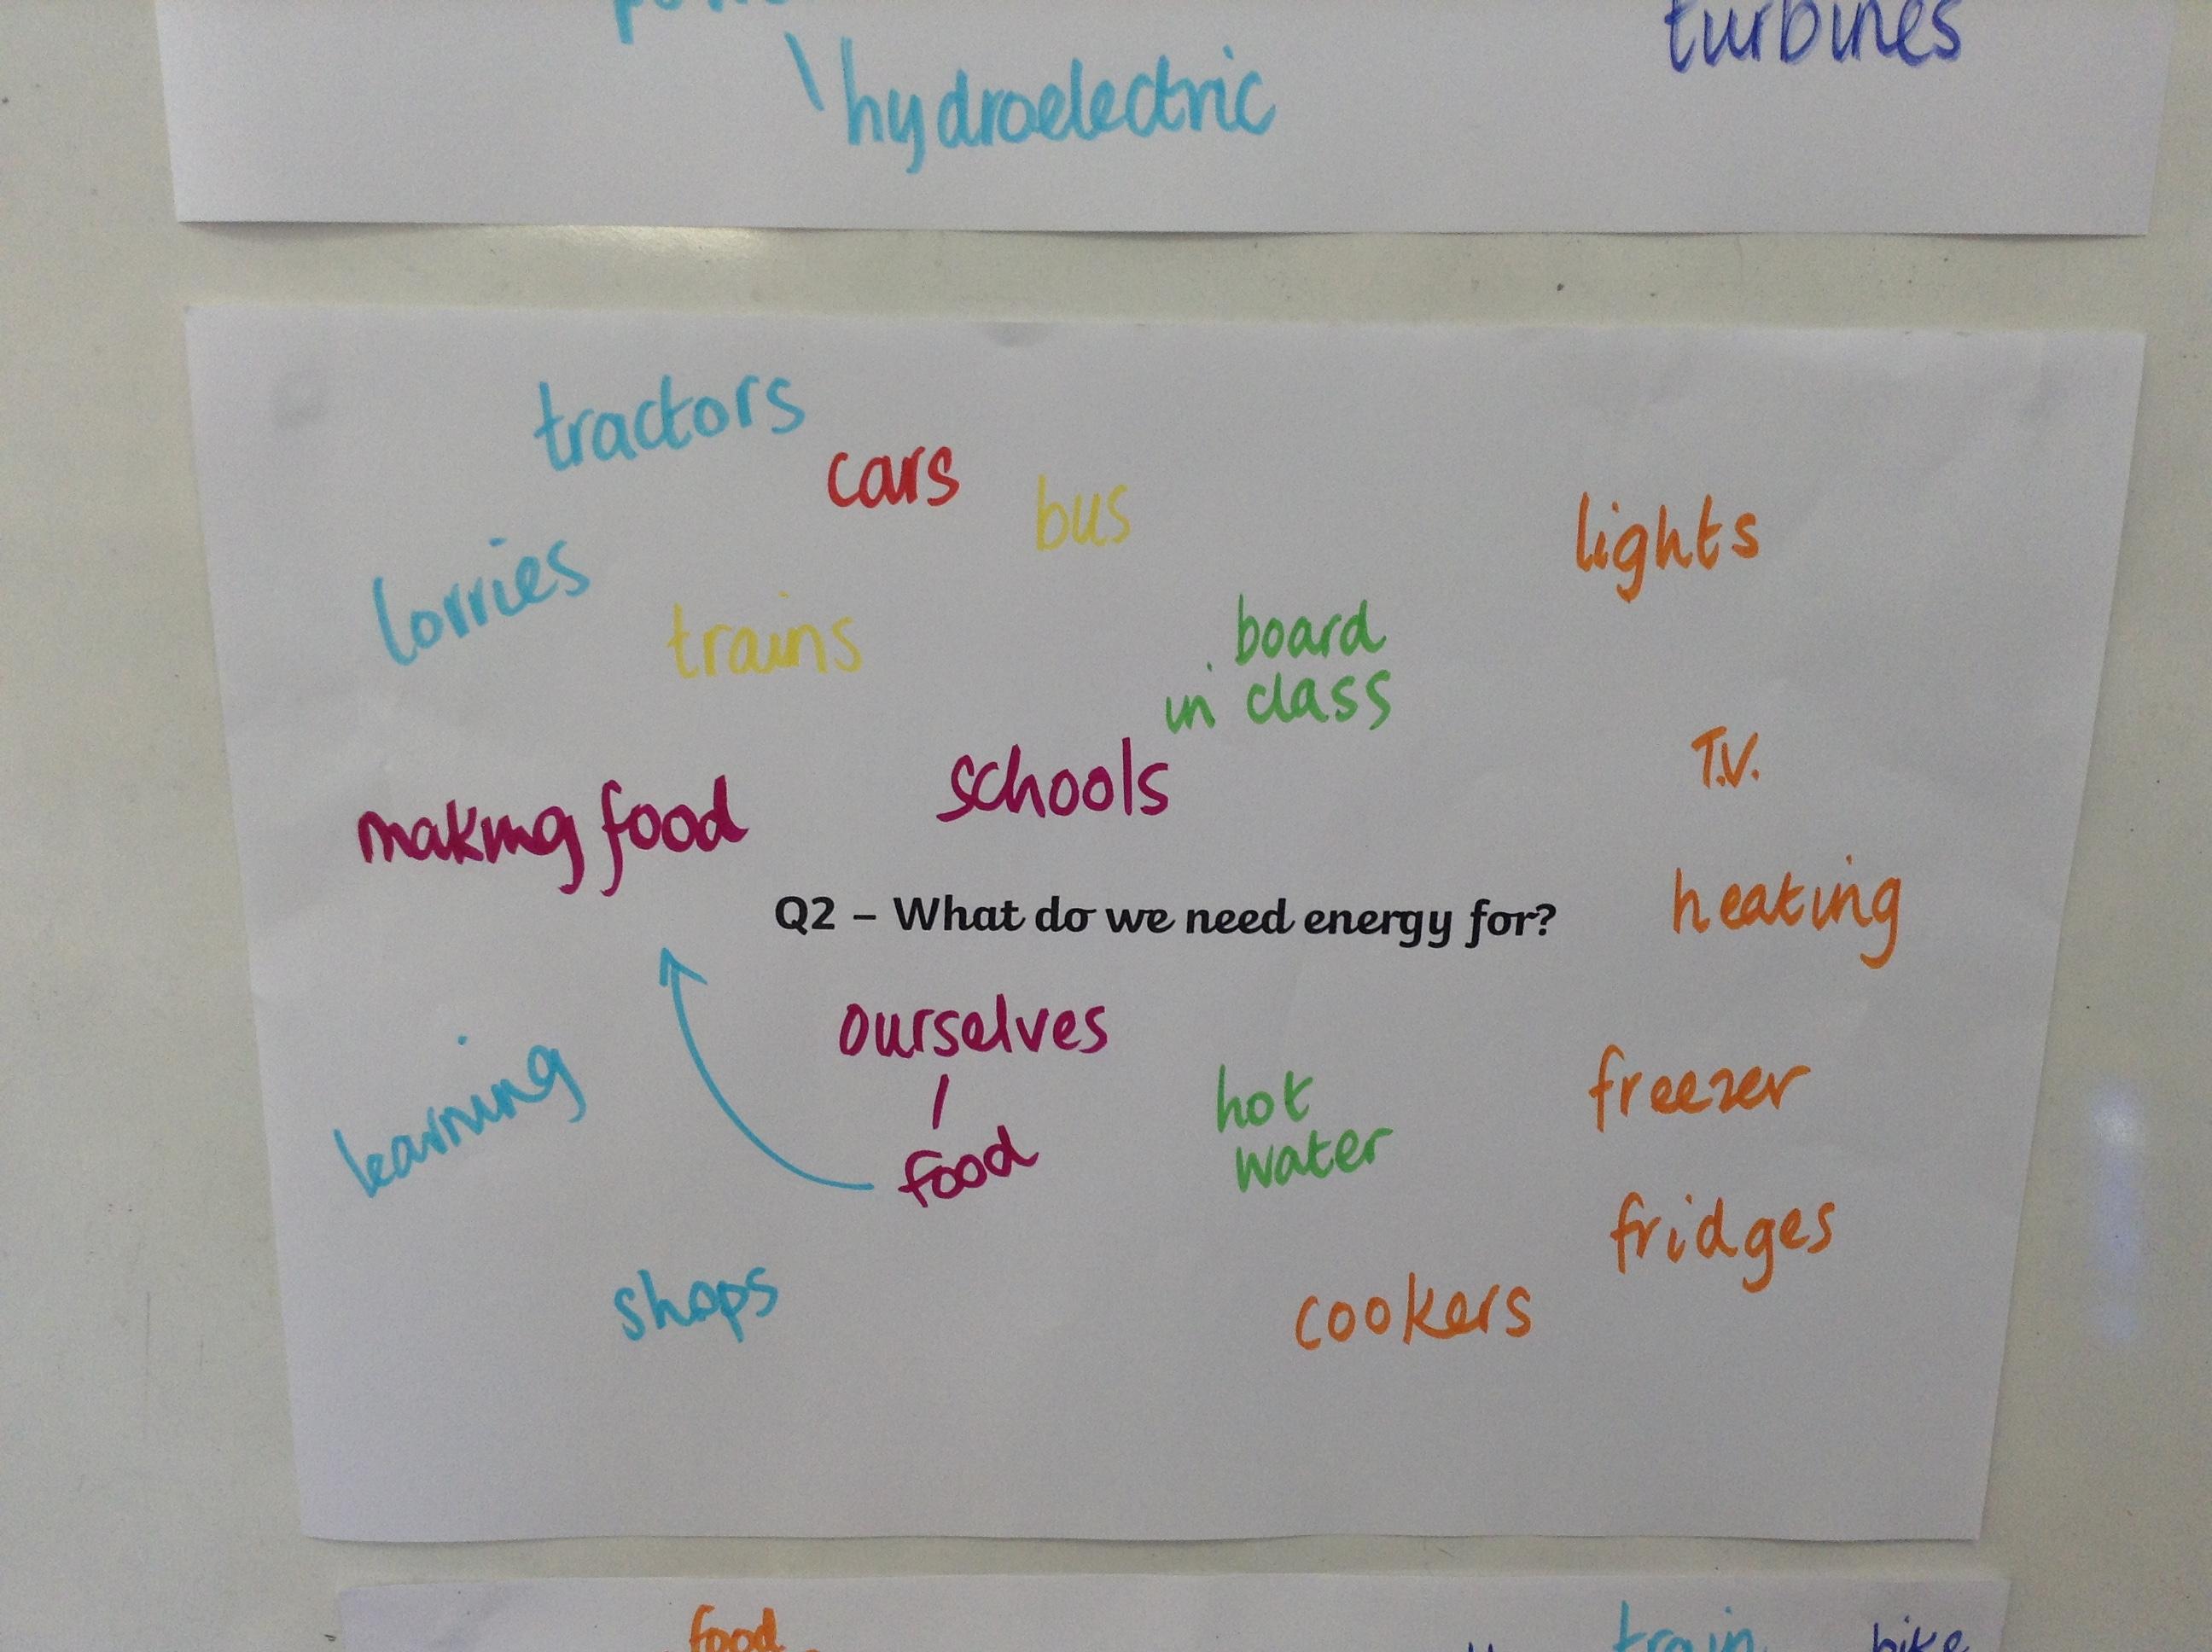 turbines
hydroelectric
tractors
cars
bus
lights
lorries
trains
board
in class
schools
T.V.
making food
Q2 – What do we need energy for?
heating
ourselves
food
learning
hot
water
freezer
fridges
shops
cookers
food
train
bike